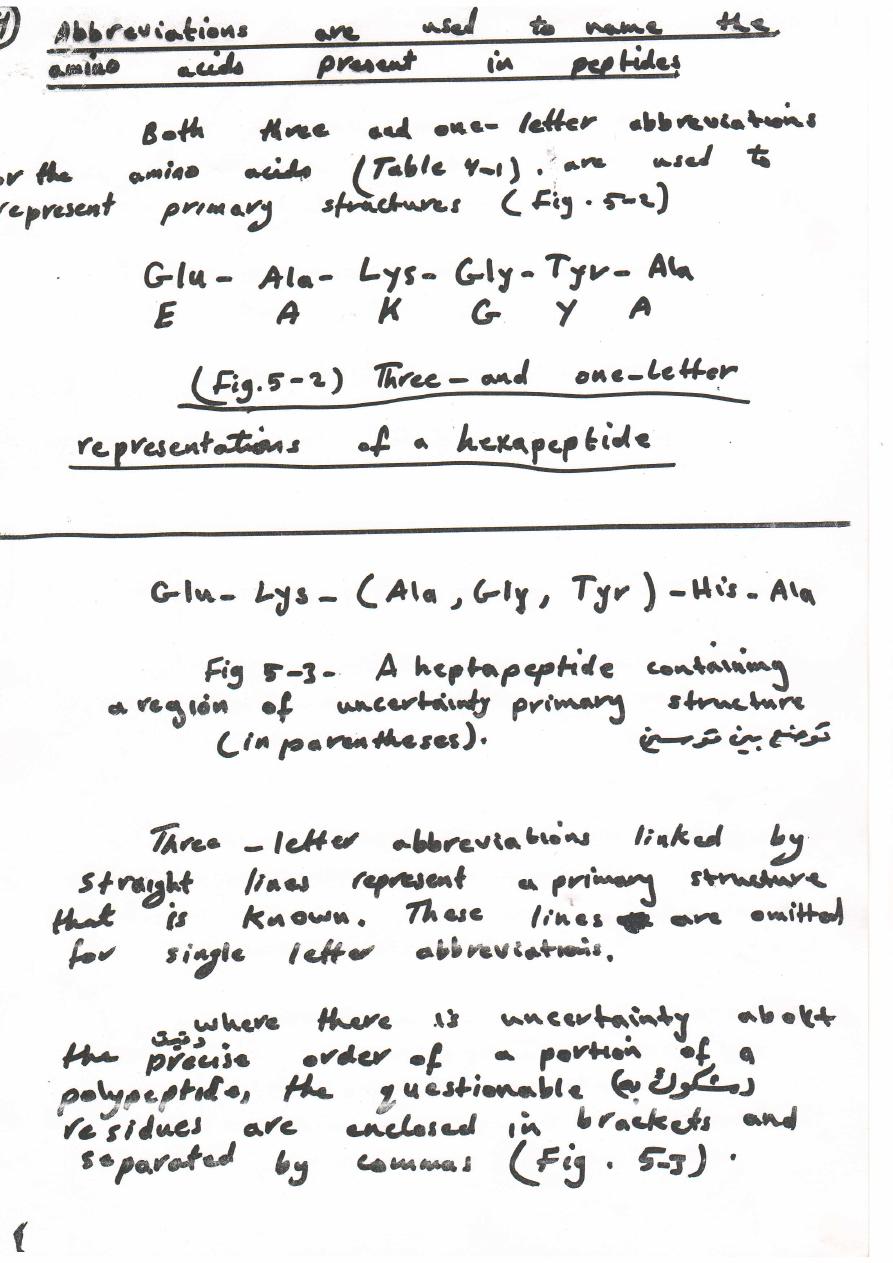 Abbreviations are used to name the
amino acids present in peptides
Both three and one- letter abbreviations
or the amino acids (Table 4-1). are used to
represent primary structures (Fig. 5-2)
Glu- Ala- Lys- Gly- Tyr- Ala
E A K G Y A
(Fig. 5-2) Three- and one-letter
representations of a hexapeptide
Glu- Lys - (Ala, Gly, Tyr) - His- Ala
Fig 5-3- A heptapeptide containing
a region of uncertainty primary structure
(in parentheses). توضع بين قوسين
Three - letter abbreviations linked by
straight lines represent a primary structure
that is known. These lines are omitted
for single letter abbreviations.
where there is uncertainty about
the precise order of a portion of a
polypeptide, the questionable (مشكوك به)
residues are enclosed in brackets and
separated by commas (Fig. 5-3).